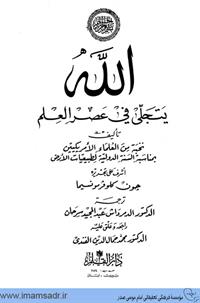 الله
يتجلى في عصر العلم
تأليف
نخبة من العلماء الأمريكيين
بمناسبة السنة الدولية لطبيعيات الأرض
أشرف على تحريره
جون كلوفر مونسيما
ترجمة
الدكتور الدمرداش عبد المجيد سرحان
راجعه وعلق عليه
الدكتور محمد جمال الدين الفندي
دار القلم
www.imamsadr.ir
موسسه فرهنگی تحقیقاتی امام موسی صدر